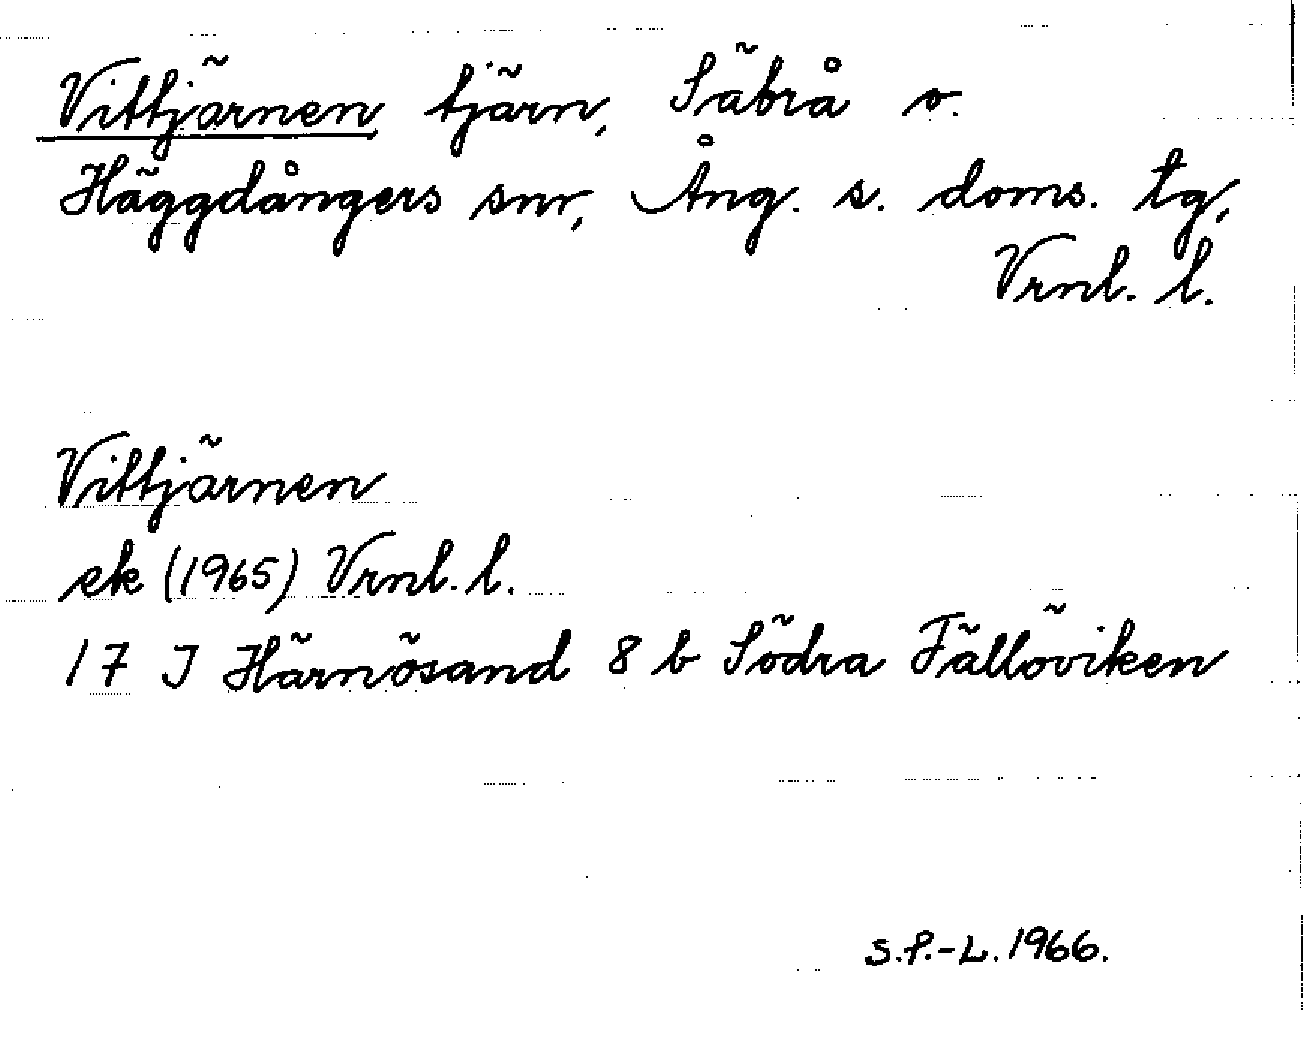 Vittjärnen tjärn, Säbrå o.
Häggdångers snr, Ång. s. doms. tg,
Vrnl. l.
Vittjärnen
ek (1965) Vrnl. l.
17 J Härnösand 8 b Södra Fällöviken
S.P.-L. 1966.